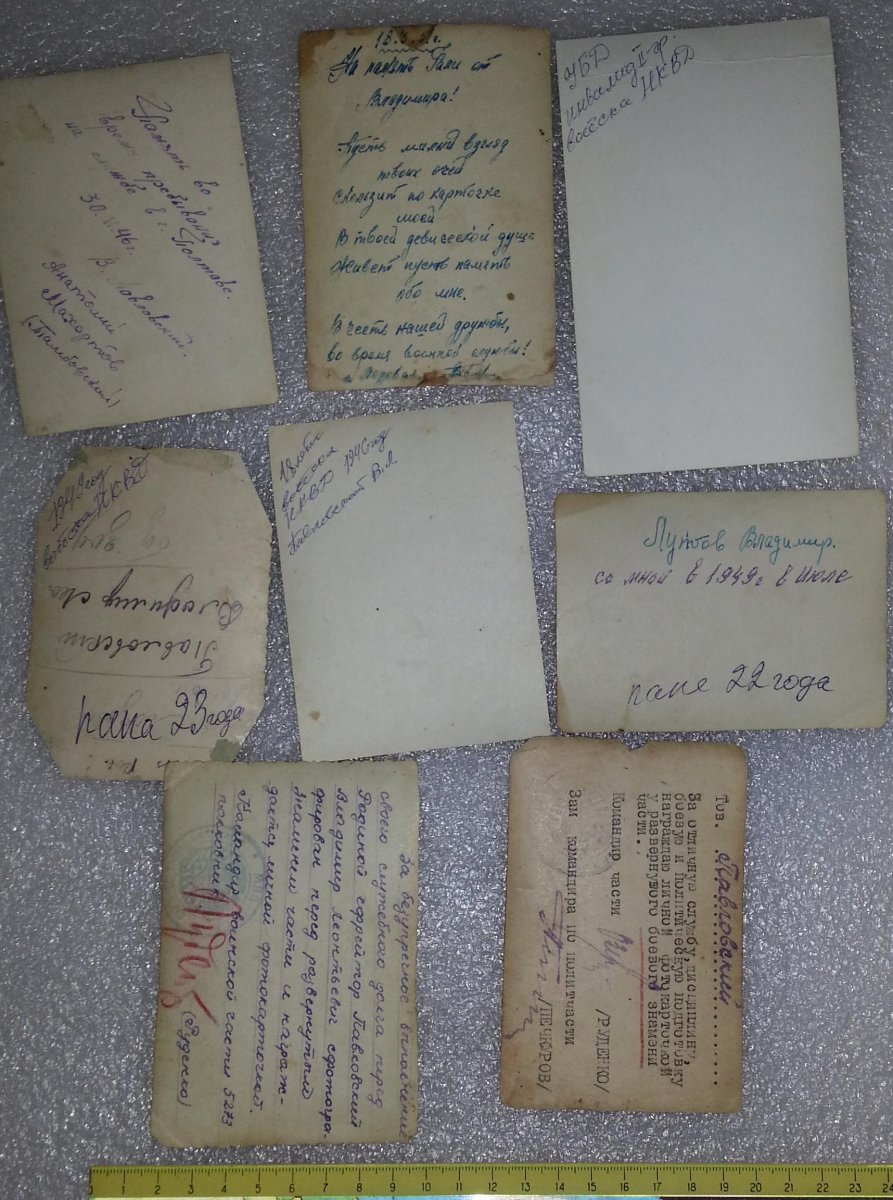 Память во
время пребывания
на службе в г. Полтаве.
30.VI.46г.
В. Павловский.
Анатолий
Махортов
(Тамбовский)
На память Гали от
Владимира!
Пусть милый взгляд
твоих очей
Скользит по карточке
моей
В твоей девической душе
Живет пусть память
обо мне.
В честь нашей дружбы,
во время военной службы!
УБД
инвалид II гр.
войска НКВД
1949 год
войска НКВД
Павловский
Владимир
папа 23 года
18 лет
войска
НКВД 1946 год
Павловский В.Л.
Лунтов Владимир.
со мной в 1949 г в июле
папе 22 года
За безупречное выполнение
своего служебного долга перед
Родиной ефрейтор Павловский
Владимир Леонтьевич сфотогра-
фирован перед развернутым
Знаменем части и награж-
дается личной фотокарточкой.
Командир воинской части 5273
полковник
(Руденко)
Тов. Павловский
За отличную службу, дисциплину,
боевую и политическую подготовку
награждаю личной фотокарточкой
у развернутого боевого знамени
части.
Командир части /РУДЕНКО/
Зам командира по политчасти
/ПЕЧКУРОВ/
0 1 2 3 4 5 6 7 8 9 10 11 12 13 14 15 16 17 18 19 20 21 22 23 24